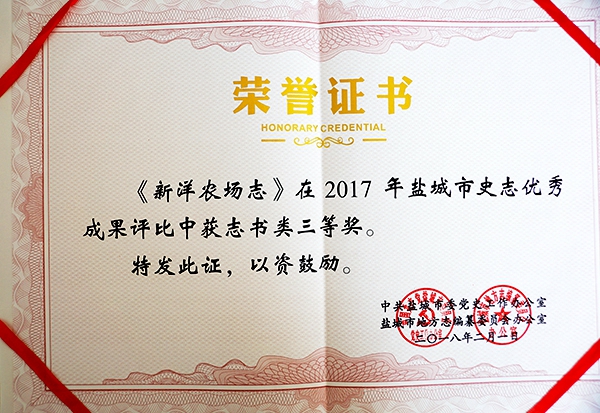 荣誉证书
HONORARY CREDENTIAL
《新洋农场志》在2017 年盐城市史志优秀
成果评比中获志书类三等奖。
特发此证，以资鼓励。
中共盐城市委党史工作办公室
盐城市地方志编纂委员会办公室
二〇一八年二月一日